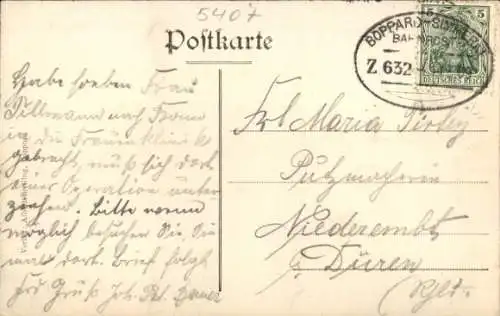 5407
Postkarte
BOPPARD - SIMMERN
BAHNPOST
Z 632
5 5
DEUTSCHES REICH
Habe soeben Frau
Tillmann nach Bonn
in die Frauenklinik
gebracht, muß sich dort
einer Operation unter
ziehen. Bitte wenn
möglich besuchen Sie Sie
mal dort. Brief folgt
Gruß Joh.
Frl Maria
Putzmacherin
Niederembt
b/ Düren
(Rhld.)